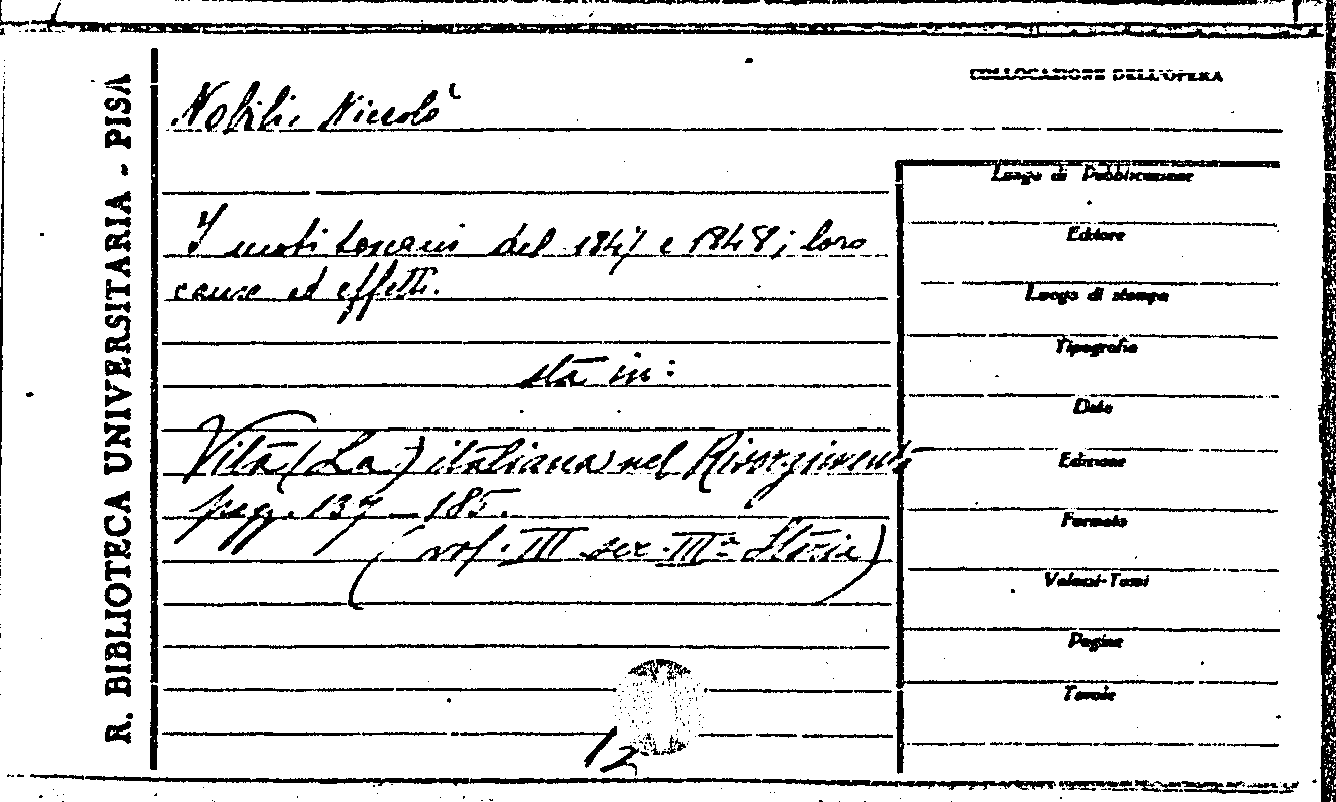 R. BIBLIOTECA UNIVERSITARIA - PISA
COLLOCAZIONE DELL'OPERA
Nobili Niccolò
I moti toscani del 1847 e 1848; loro
cause ed effetti.
sta in:
Vita (La) italiana nel Risorgimento
pagg. 137-185.
(vol. III ser. IIIª Storia)
12
Luogo di Pubblicazione
Editore
Luogo di stampa
Tipografia
Data
Edizione
Formato
Volumi-Tomi
Pagine
Tavole